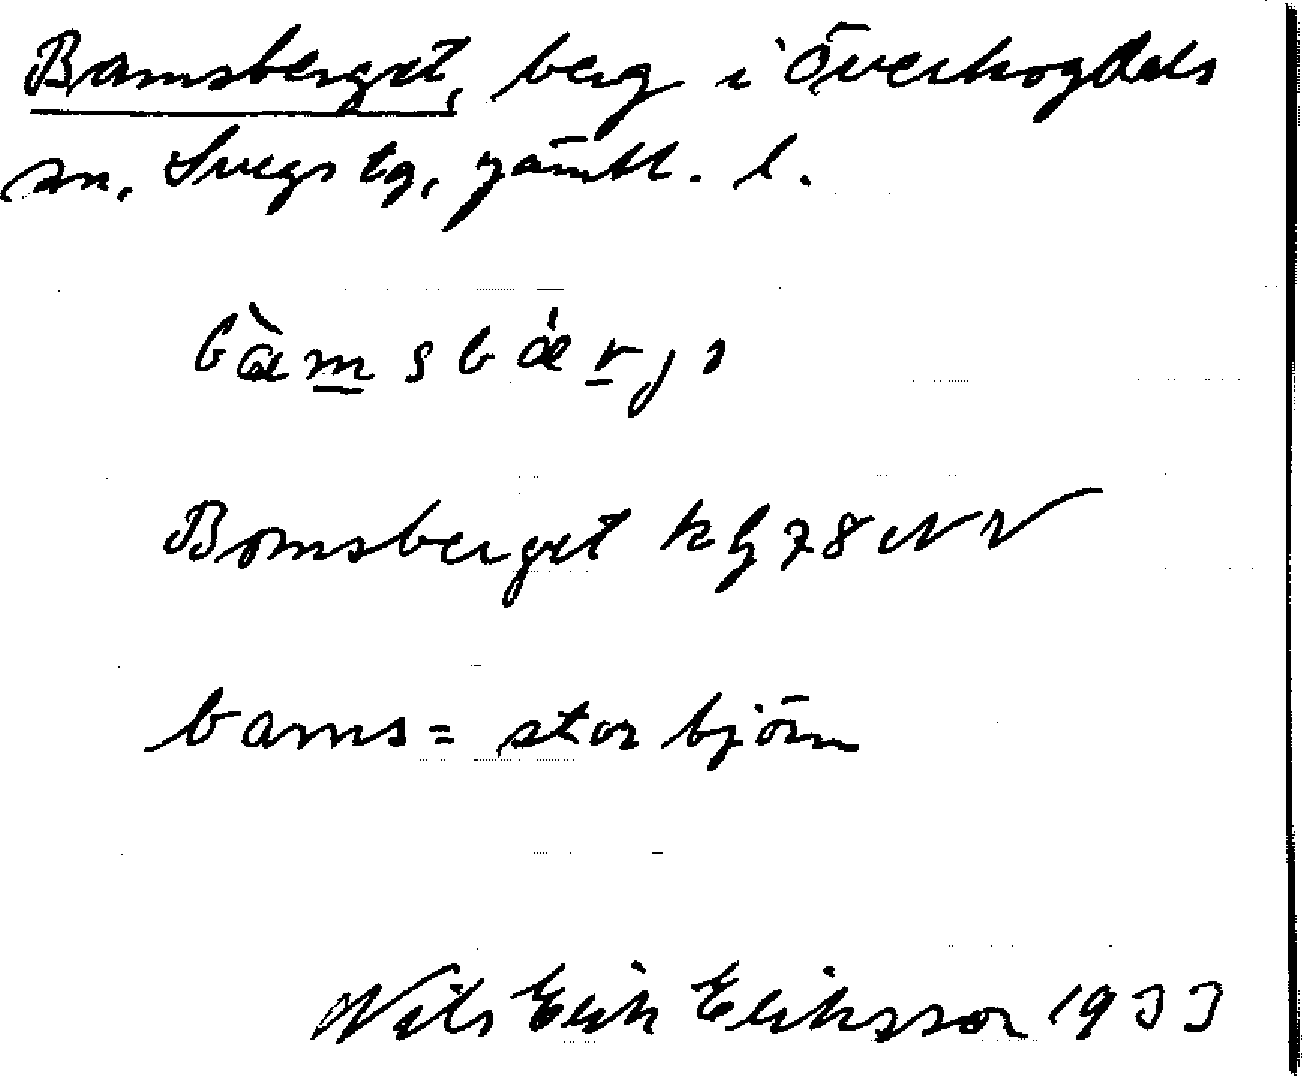 Bamsberget, berg i Överhogdals
sn. Svegs tg, Jämtl. l.
Bomsberget kbl 78 NV
bams = stor björn
Nils Erik Eriksson 1933